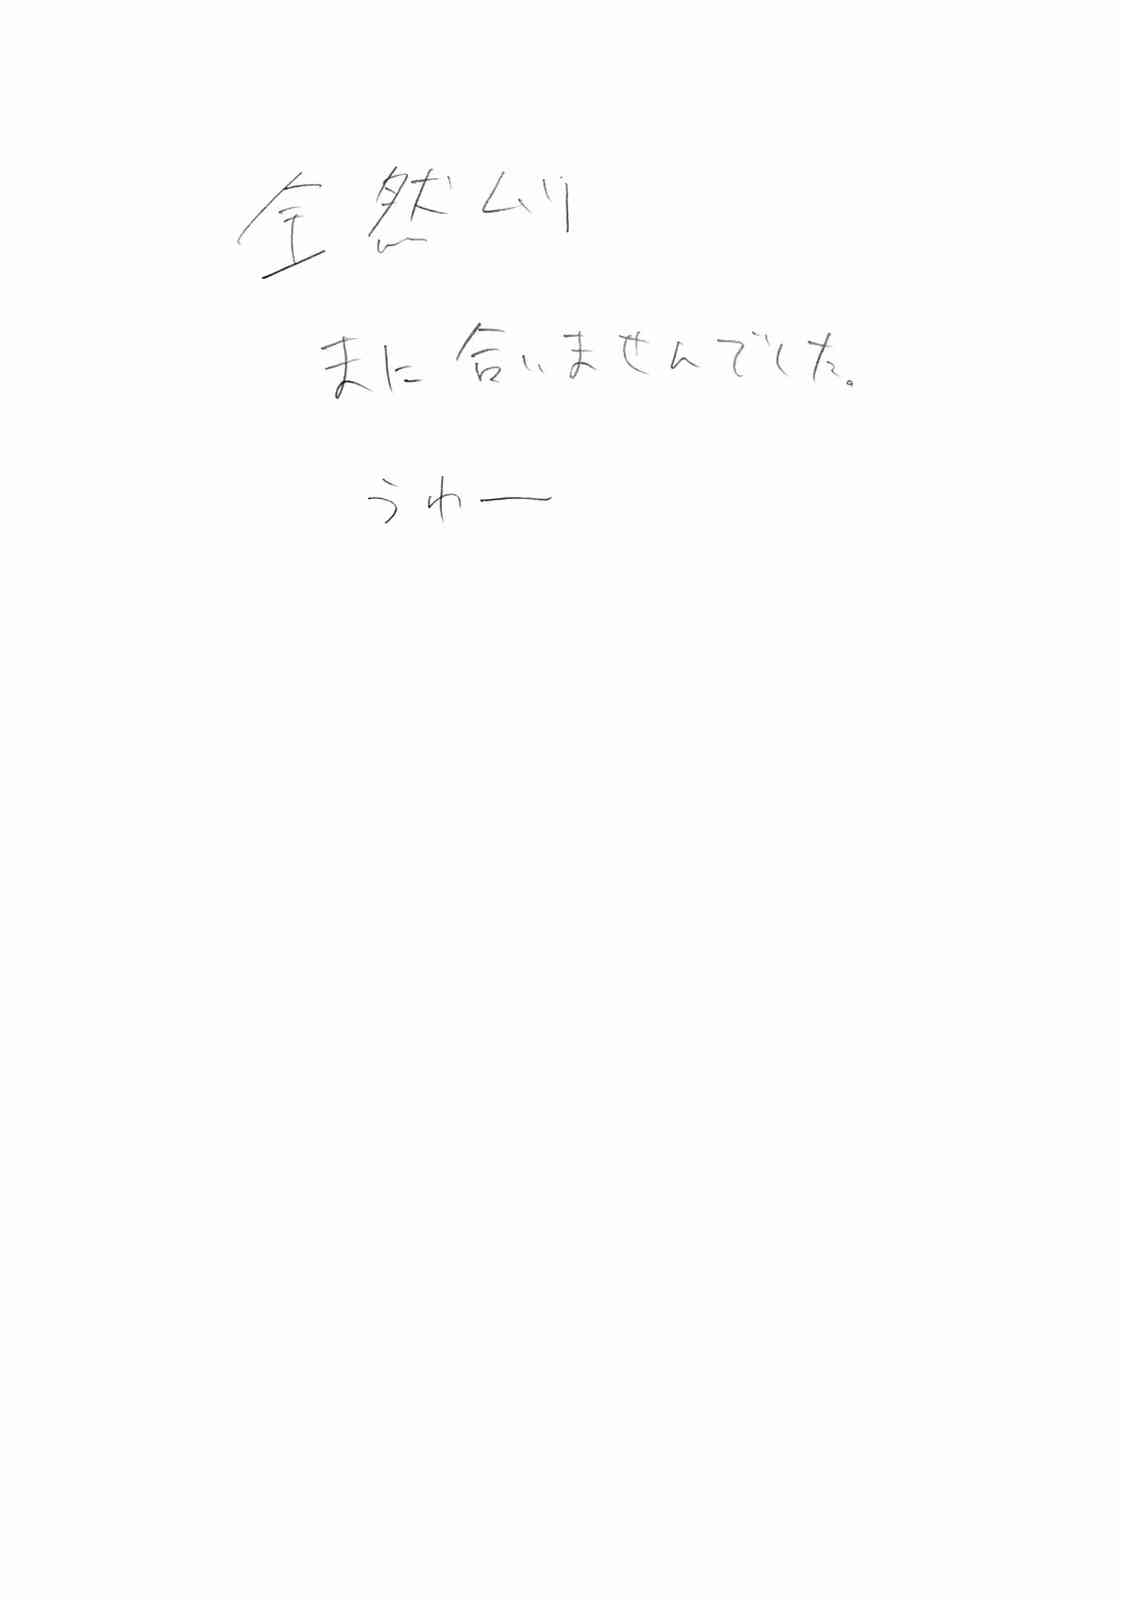 全然ムリ
まに合いませんでした。
うわー